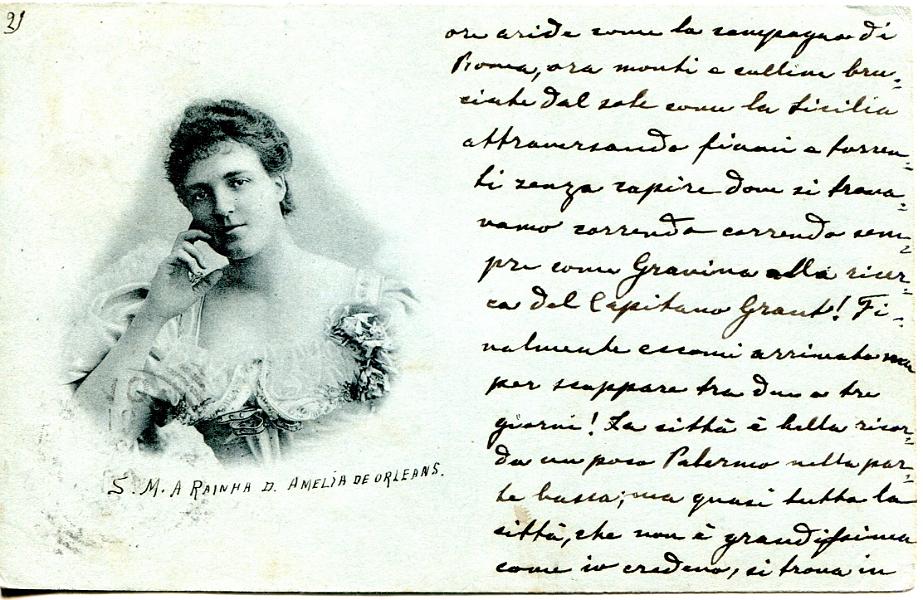 21
ore aride come la campagna di
Roma, ora monti e colline bru-
ciate dal sole come la Sicilia
attraversando fiumi e torren-
ti senza capire dove si trova-
vamo correndo correndo sem-
pre come Gravina alla ricer-
ca del Capitano Grant! Fi-
nalmente eccomi arrivata ma
per scappare tra due o tre
giorni! La città è bella ricor-
da un poco Palermo nella par-
te bassa; ma quasi tutta la
città, che non è grandissima
come io credevo, si trova in
S. M. A RAINHA D. AMELIA DE ORLEANS.